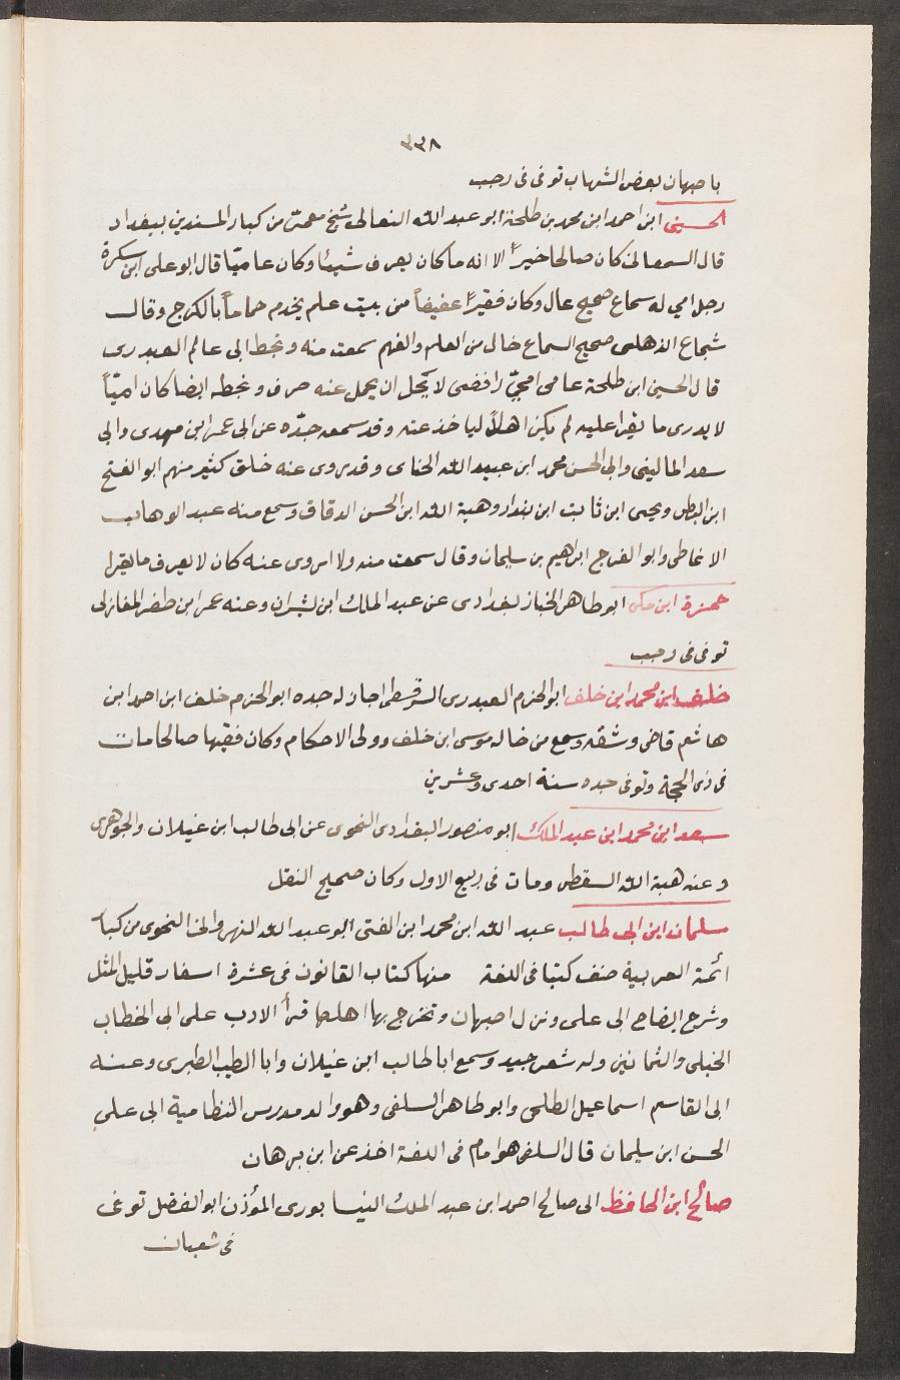 ٣٣٨
باصبهان بعض الشهاب توفى فى رجب
الحسين ابن احمد ابن محمد بن طلحة ابو عبد الله النعالى شيخ معمر من كبار المسندين ببغداد
قال السمعانى كان صالحا خيراً الا انه ما كان يعرف شيئا وكان عاميّا قال ابو على ابن سكرة
رجل امي له سماع صحيح عال وكان فقيراً عفيفاً من بيت علم يخدم حماماً بالكرج وقال
شجاع الذهلى صحيح السماع خال من العلم والفهم سمعت منه و بخط ابى عامر العبدرى
قال الحسين ابن طلحة عامى امّي رافضى لا يحل ان يحمل عنه حرف و بخطه ايضا كان اميّاً
لا يدرى ما يقرا عليه لم يكن اهلاً ليا خذ عنه وقد سمعه جدّه عن ابى عمر ابن مهدى وابى
سعد المالينى وابى الحسن محمد ابن عبيد الله الحناى وقد روى عنه خلق كثير منهم ابو الفتح
ابن البطى ويحيى ابن ثابت ابن بندار وهبة الله ابن الحسن الدقاق وسمع منه عبد الوهاب
الا غاطى وابو الفرج ابراهيم بن سليمان وقال سمعت منه ولا اروى عنه كان لا يعرف ما يقرا
حمزة ابن مكى ابو طاهر الخباز بغدادى عن عبد الملك ابن بشران وعنه عمر ابن ظفر المغازلى
توفى فى رجب
خلف ابن محمد ابن خلف ابو الحزم العبدرى السرقسطى اجاز له جده ابو الحزم خلف ابن احمد ابن
هاشم قاضى وشقه وسمع من خاله موسى ابن خلف وولى الاحكام وكان فقيها صالحا مات
فى ذى الحجة وتوفى جده سنة احدى وعشرين
سعد ابن محمد ابن عبد الملك ابو منصور البغدادى النحوى عن ابى طالب ابن غيلان والجوهرى
وعنه هبة الله السقطى ومات فى ربيع الاول وكان صحيح النقل
سلمان ابن ابى طالب عبد الله ابن محمد ابن الفتى ابو عبد الله النهروانى النحوى من كبار
ائمة العربية صنف كتبا فى اللغة منها كتاب القانون فى عشرة اسفار قليل المثل
وشرح ايضاح ابى على ونزل اصبهان وتخرج بها اهلها قرأ الادب على ابى الخطاب
الجبلى والثمانين وله شعر جيد وسمع ابا طالب ابن غيلان وابا الطيب الطبرى وعنه
ابى القاسم اسماعيل الطلحى وابو طاهر السلفى وهو والد مدرس النظامية ابى على
الحسن ابن سليمان قال السلفى هو امام فى اللغة اخذ عن ابن برهان
صالح ابن الحافظ ابى صالح احمد ابن عبد الملك النيسابورى المؤذن ابو الفضل توفى
فى شعبان